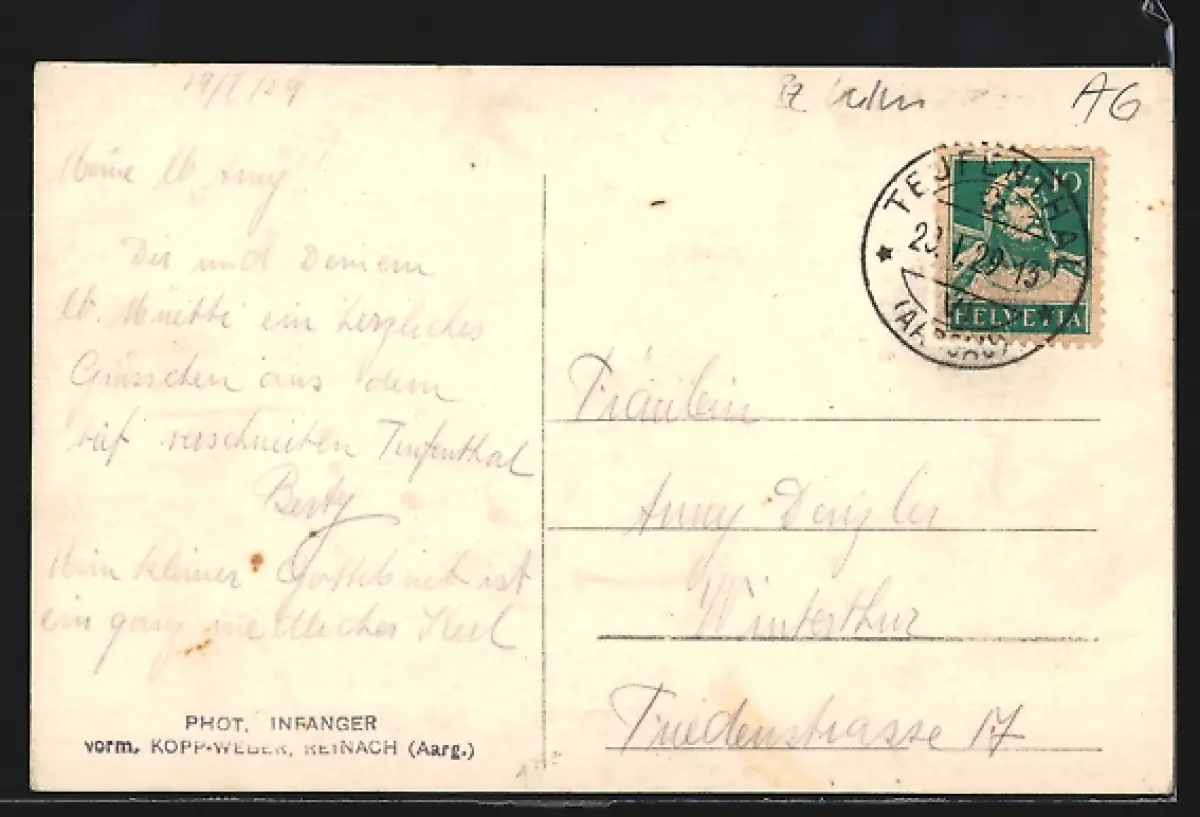 19/I/29
AG
Meine lb. Anny!
Dir und Deinem
lb. Muetti ein herzliches
Grüsschen aus dem
tief verschneiten Teufenthal
Berty
Mein kleiner Gottebueb ist
ein ganz niedlicher Kerl
PHOT. INFANGER
vorm. KOPP-WEBER, REINACH (Aarg.)
TEUFENTHAL
(AARGAU)
10
HELVETIA
Fräulein
Anny Dengler
Winterthur
Friedenstrasse 17